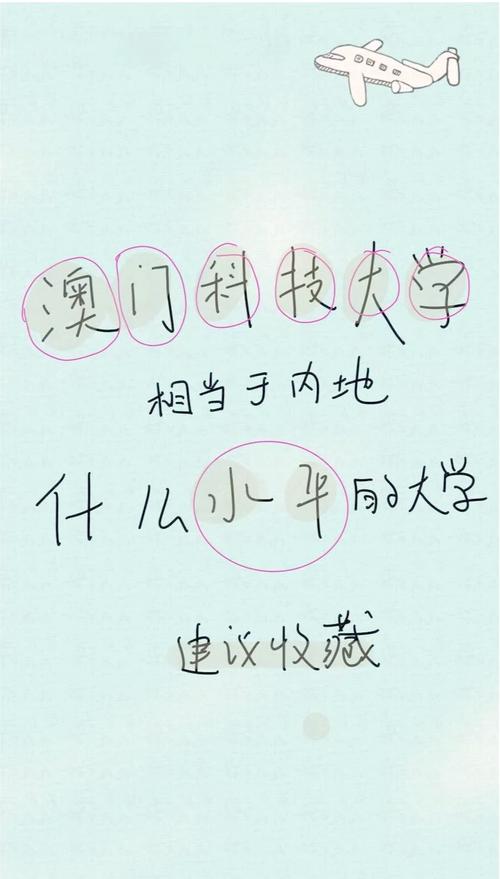 澳门科技大学
相当于内地
什么水平的大学
建议收藏